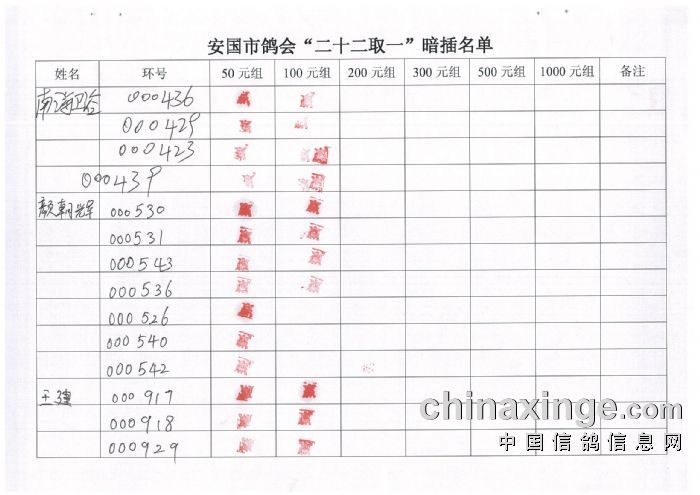 安国市鸽会“二十二取一”暗插名单
姓名 环号 50 元组 100 元组 200 元组 300 元组 500 元组 1000 元组 备注
000436
000429
000423
000439
颜朝辉 000530
000531
000543
000536
000526
000540
000542
王建 000917
000918
000929
chinaxinge.com
中国信鸽信息网